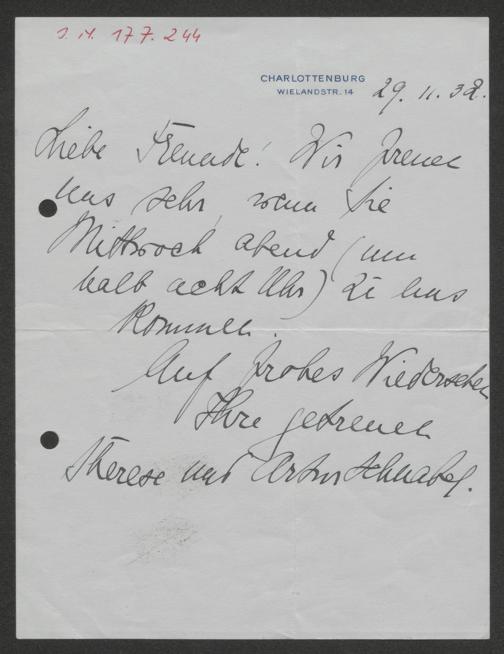 J. N. 177.244
CHARLOTTENBURG
WIELANDSTR. 14
29. 11. 32.
Liebe Freunde! Wir freuen
uns sehr, wenn Sie
Mittwoch abend (um
halb acht Uhr) zu uns
kommen.
Auf frohes Wiedersehen
Ihre getreuen
Therese und Artur Schnabel.